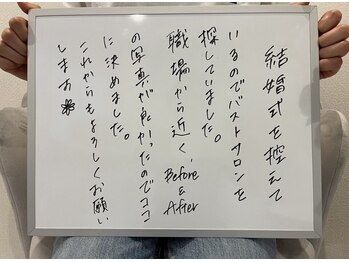 結婚式を控えて
いるのでバストサロンを
探していました。
職場から近く、Before & After
の写真が良かったのでココ
に決めました。
これからもよろしくお願い
します